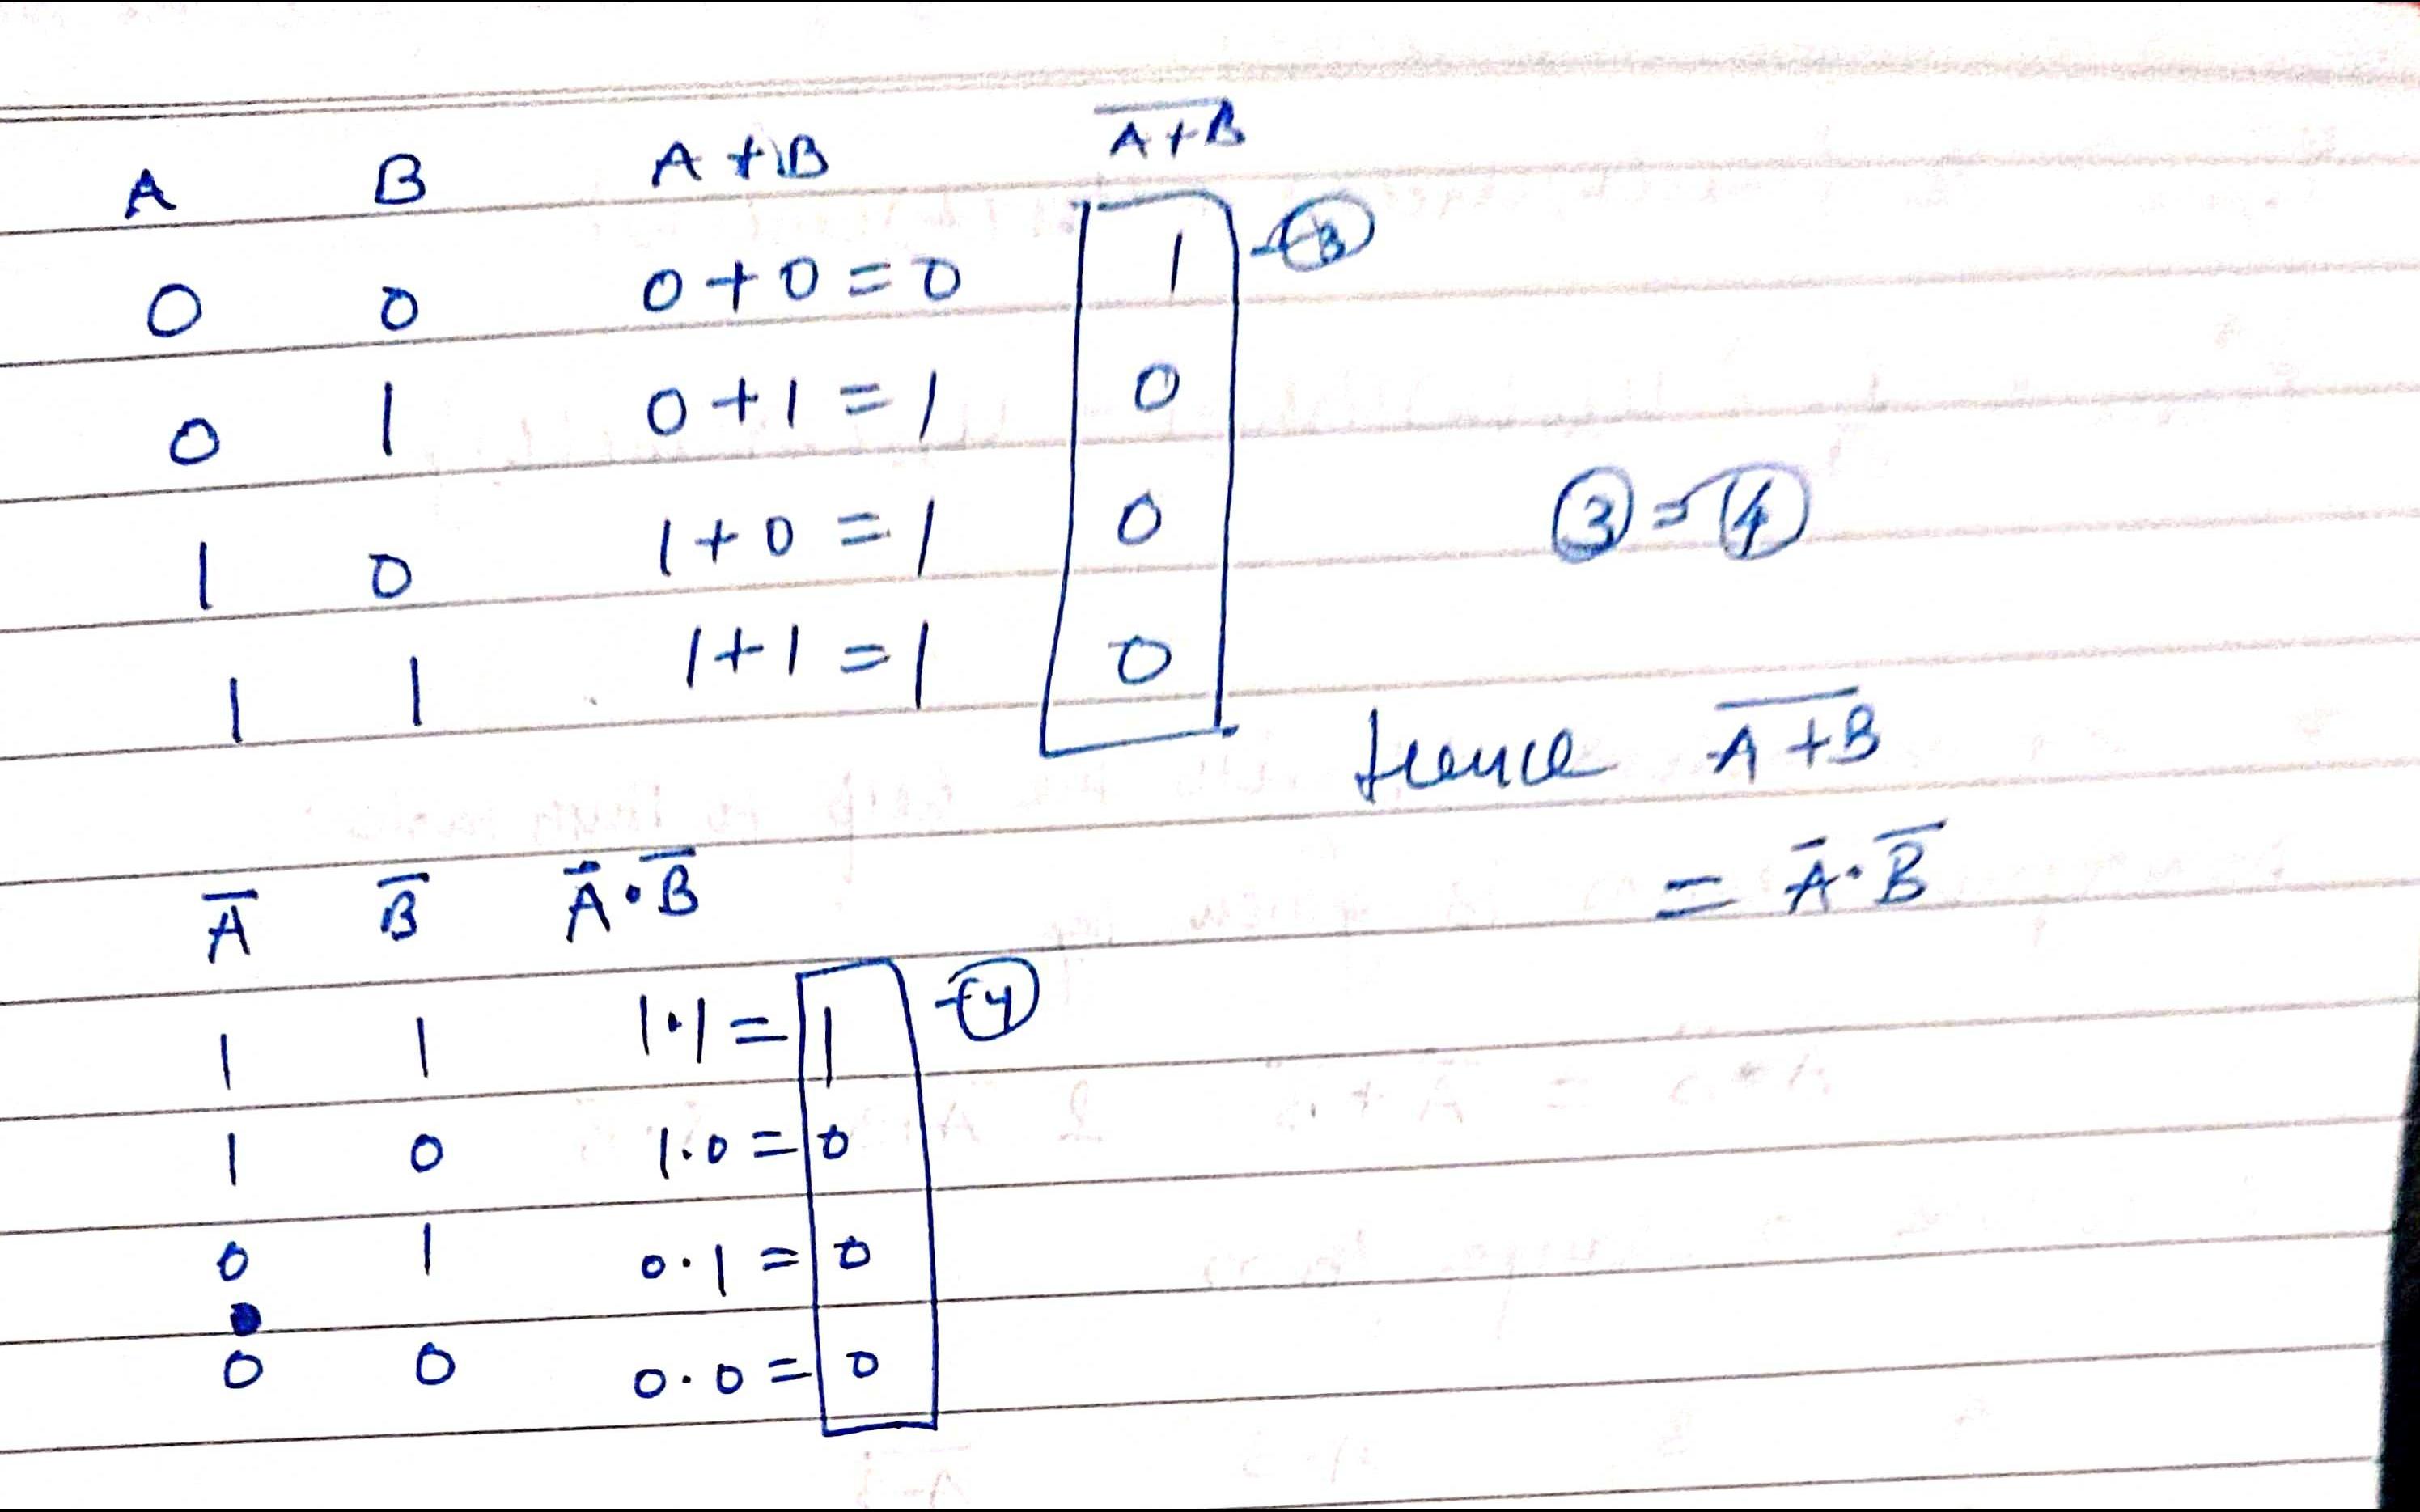 A B A+B A̅+̅B̅
0 0 0+0=0 1 -③
0 1 0+1=1 0
1 0 1+0=1 0
③=④
1 1 1+1=1 0
hence A̅+̅B̅
= A̅·B̅
A̅ B̅ A̅·B̅
1 1 1·1=1 -④
1 0 1·0=0
0 1 0·1=0
0 0 0·0=0